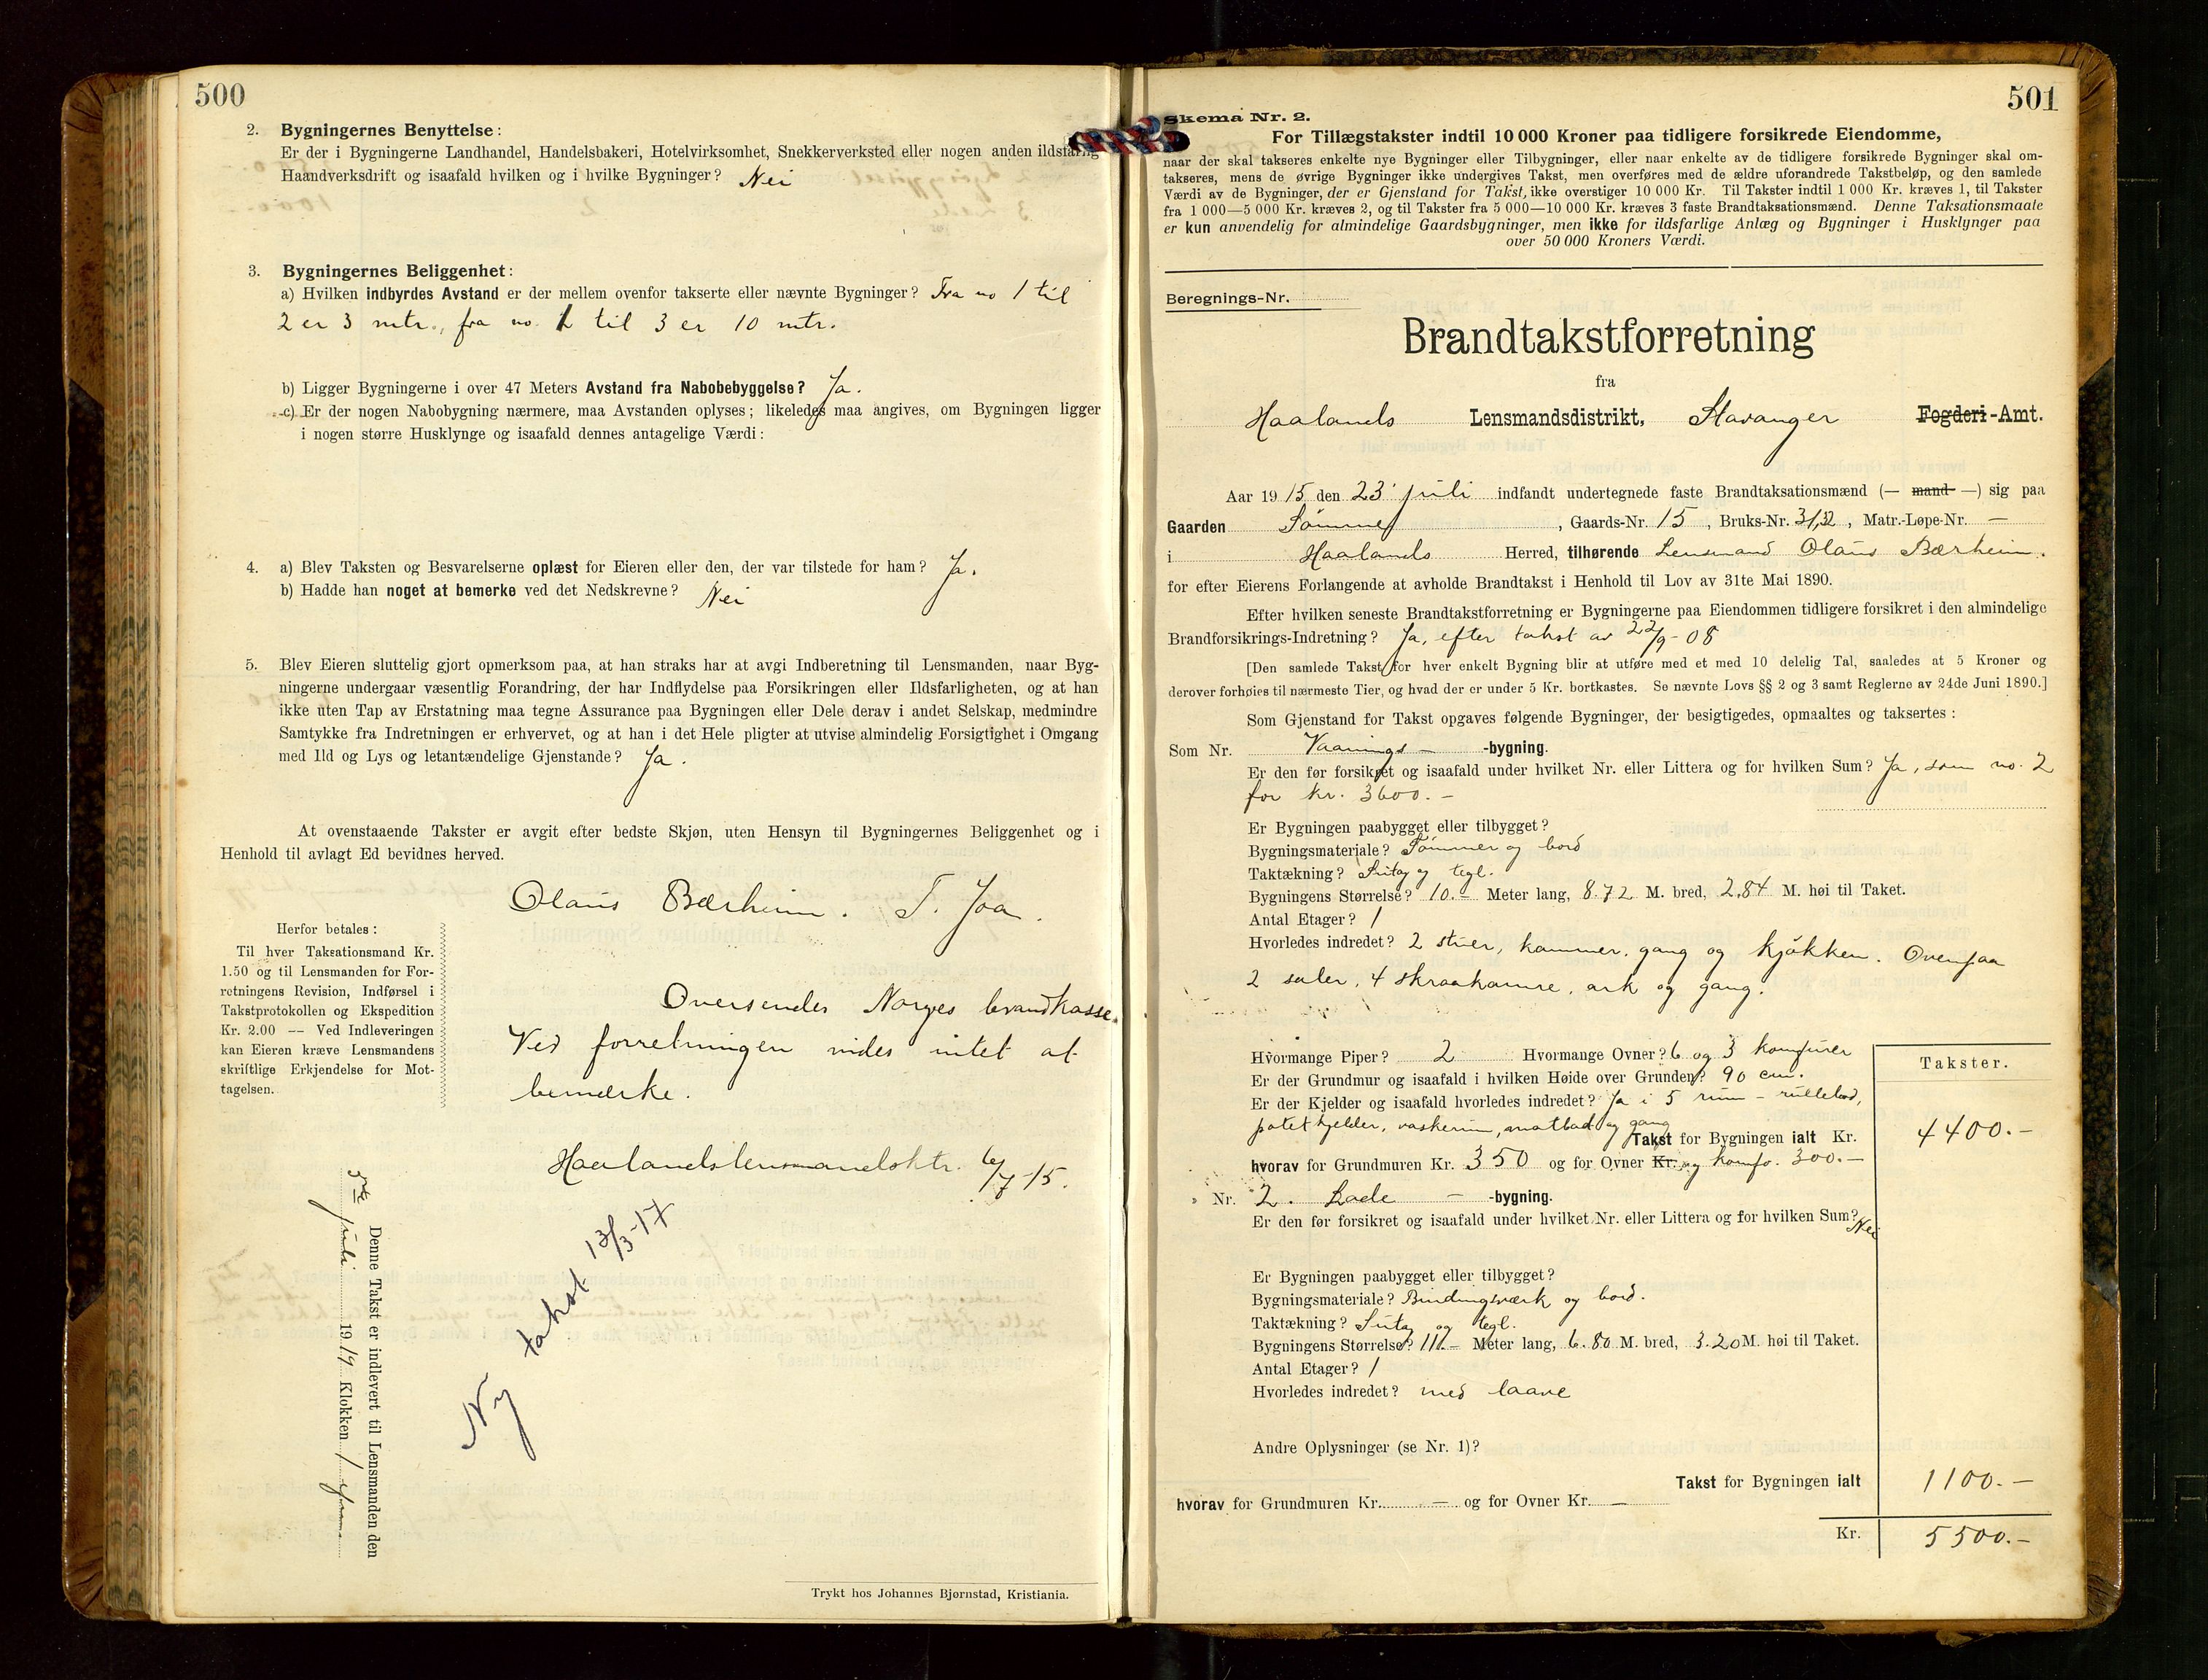 500
2. Bygningernes Benyttelse:
Er der i Bygningerne Landhandel, Handelsbakeri, Hotelvirksomhet, Snekkerverksted eller nogen anden ildsfarlig
Haandverksdrift og isaafald hvilken og i hvilke Bygninger? Nei
3. Bygningernes Beliggenhet:
a) Hvilken indbyrdes Avstand er der mellem ovenfor takserte eller nævnte Bygninger? Fra no 1 til
2 er 3 mtr., fra no. 2 til 3 er 10 mtr.
b) Ligger Bygningerne i over 47 Meters Avstand fra Nabobebyggelse? Ja.
c) Er der nogen Nabobygning nærmere, maa Avstanden oplyses; likeledes maa angives, om Bygningen ligger
i nogen større Husklynge og isaafald dennes antagelige Værdi:
4. a) Blev Taksten og Besvarelserne oplæst for Eieren eller den, der var tilstede for ham? Ja.
b) Hadde han noget at bemerke ved det Nedskrevne? Nei
5. Blev Eieren sluttelig gjort opmerksom paa, at han straks har at avgi Indberetning til Lensmanden, naar Byg-
ningerne undergaar væsentlig Forandring, der har Indflydelse paa Forsikringen eller Ildsfarligheten, og at han
ikke uten Tap av Erstatning maa tegne Assurance paa Bygningen eller Dele derav i andet Selskap, medmindre
Samtykke fra Indretningen er erhvervet, og at han i det Hele pligter at utvise almindelig Forsigtighet i Omgang
med Ild og Lys og letantændelige Gjenstande? Ja.
At ovenstaaende Takster er avgit efter bedste Skjøn, uten Hensyn til Bygningernes Beliggenhet og i
Henhold til avlagt Ed bevidnes herved.
Olaus Bærheim. T. Joa.
Herfor betales:
Til hver Taksationsmand Kr.
1.50 og til Lensmanden for For-
retningens Revision, Indførsel i
Takstprotokollen og Ekspedition
Kr. 2.00 — Ved Indleveringen
kan Eieren kræve Lensmandens
skriftlige Erkjendelse for Mot-
tagelsen.
Oversendes Norges brandkasse.
Ved forretningen vides intet at
bemærke.
Haalandslensmandsktr. 6/7-15.
Ny takst 13/3-17
Denne Takst er indlevert til Lensmanden den
5te juli 1919 Klokken 1
Trykt hos Johannes Bjørnstad, Kristiania.
501
Skema Nr. 2.
For Tillægstakster indtil 10 000 Kroner paa tidligere forsikrede Eiendomme,
naar der skal takseres enkelte nye Bygninger eller Tilbygninger, eller naar enkelte av de tidligere forsikrede Bygninger skal om-
takseres, mens de øvrige Bygninger ikke undergives Takst, men overføres med de ældre uforandrede Takstbeløp, og den samlede
Værdi av de Bygninger, der er Gjenstand for Takst, ikke overstiger 10 000 Kr. Til Takster indtil 1 000 Kr. kræves 1, til Takster
fra 1 000—5 000 Kr. kræves 2, og til Takster fra 5 000—10 000 Kr. kræves 3 faste Brandtaksationsmænd. Denne Taksationsmaate
er kun anvendelig for almindelige Gaardsbygninger, men ikke for ildsfarlige Anlæg og Bygninger i Husklynger paa
over 50 000 Kroners Værdi.
Beregnings-Nr.
Brandtakstforretning
fra
Haalands Lensmandsdistrikt, Stavanger Fogderi-Amt.
Aar 1915 den 23' juli indfandt undertegnede faste Brandtaksationsmænd (— mand —) sig paa
Gaarden Sømme, Gaards-Nr. 15, Bruks-Nr. 31,32, Matr.-Løpe-Nr. —
i Haalands Herred, tilhørende Lensmand Olaus Bærheim.
for efter Eierens Forlangende at avholde Brandtakst i Henhold til Lov av 31te Mai 1890.
Efter hvilken seneste Brandtakstforretning er Bygningerne paa Eiendommen tidligere forsikret i den almindelige
Brandforsikrings-Indretning? Ja, efter takst av 22/9-08
[Den samlede Takst for hver enkelt Bygning blir at utføre med et med 10 delelig Tal, saaledes at 5 Kroner og
derover forhøies til nærmeste Tier, og hvad der er under 5 Kr. bortkastes. Se nævnte Lovs §§ 2 og 3 samt Reglerne av 24de Juni 1890.]
Som Gjenstand for Takst opgaves følgende Bygninger, der besigtigedes, opmaaltes og taksertes:
Som Nr. Vaanings- -bygning.
Er den før forsikret og isaafald under hvilket Nr. eller Littera og for hvilken Sum? Ja, som no. 2
for kr. 3600.-
Er Bygningen paabygget eller tilbygget?
Bygningsmateriale? Tømmer og bord
Taktækning? Sutag og tegl.
Bygningens Størrelse? 10.- Meter lang, 8.72 M. bred, 2.84 M. høi til Taket.
Antal Etager? 1
Hvorledes indredet? 2 stuer, kammer, gang og kjøkken. Ovenpaa
2 saler, 4 skraakamre, ark og gang.
Hvormange Piper? 2 Hvormange Ovner? 6 og 3 komfurer
Er der Grundmur og isaafald i hvilken Høide over Grunden? 90 cm.
Er der Kjelder og isaafald hvorledes indredet? Ja i 5 rum - rullebod,
potetkjelder, vaskerum, matbod og gang
Takster.
Takst for Bygningen ialt Kr. 4400.-
hvorav for Grundmuren Kr. 350 og for Ovner Kr. og komfo. 300.-
Nr. 2. Lade - -bygning.
Er den før forsikret og isaafald under hvilket Nr. eller Littera og for hvilken Sum? Nei
Er Bygningen paabygget eller tilbygget?
Bygningsmateriale? Bindingsværk og bord.
Taktækning? Sutag og tegl.
Bygningens Størrelse? 11.- Meter lang, 6.80 M. bred, 3.20 M. høi til Taket.
Antal Etager? 1
Hvorledes indredet? med laave
Andre Oplysninger (se Nr. 1)?
Takst for Bygningen ialt 1100.-
hvorav for Grundmuren Kr. — og for Ovner Kr. —
Kr. 5500.-